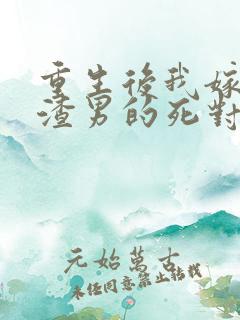 重生後我嫁
渣男的死對
元始萬古
未任同意禁止转载